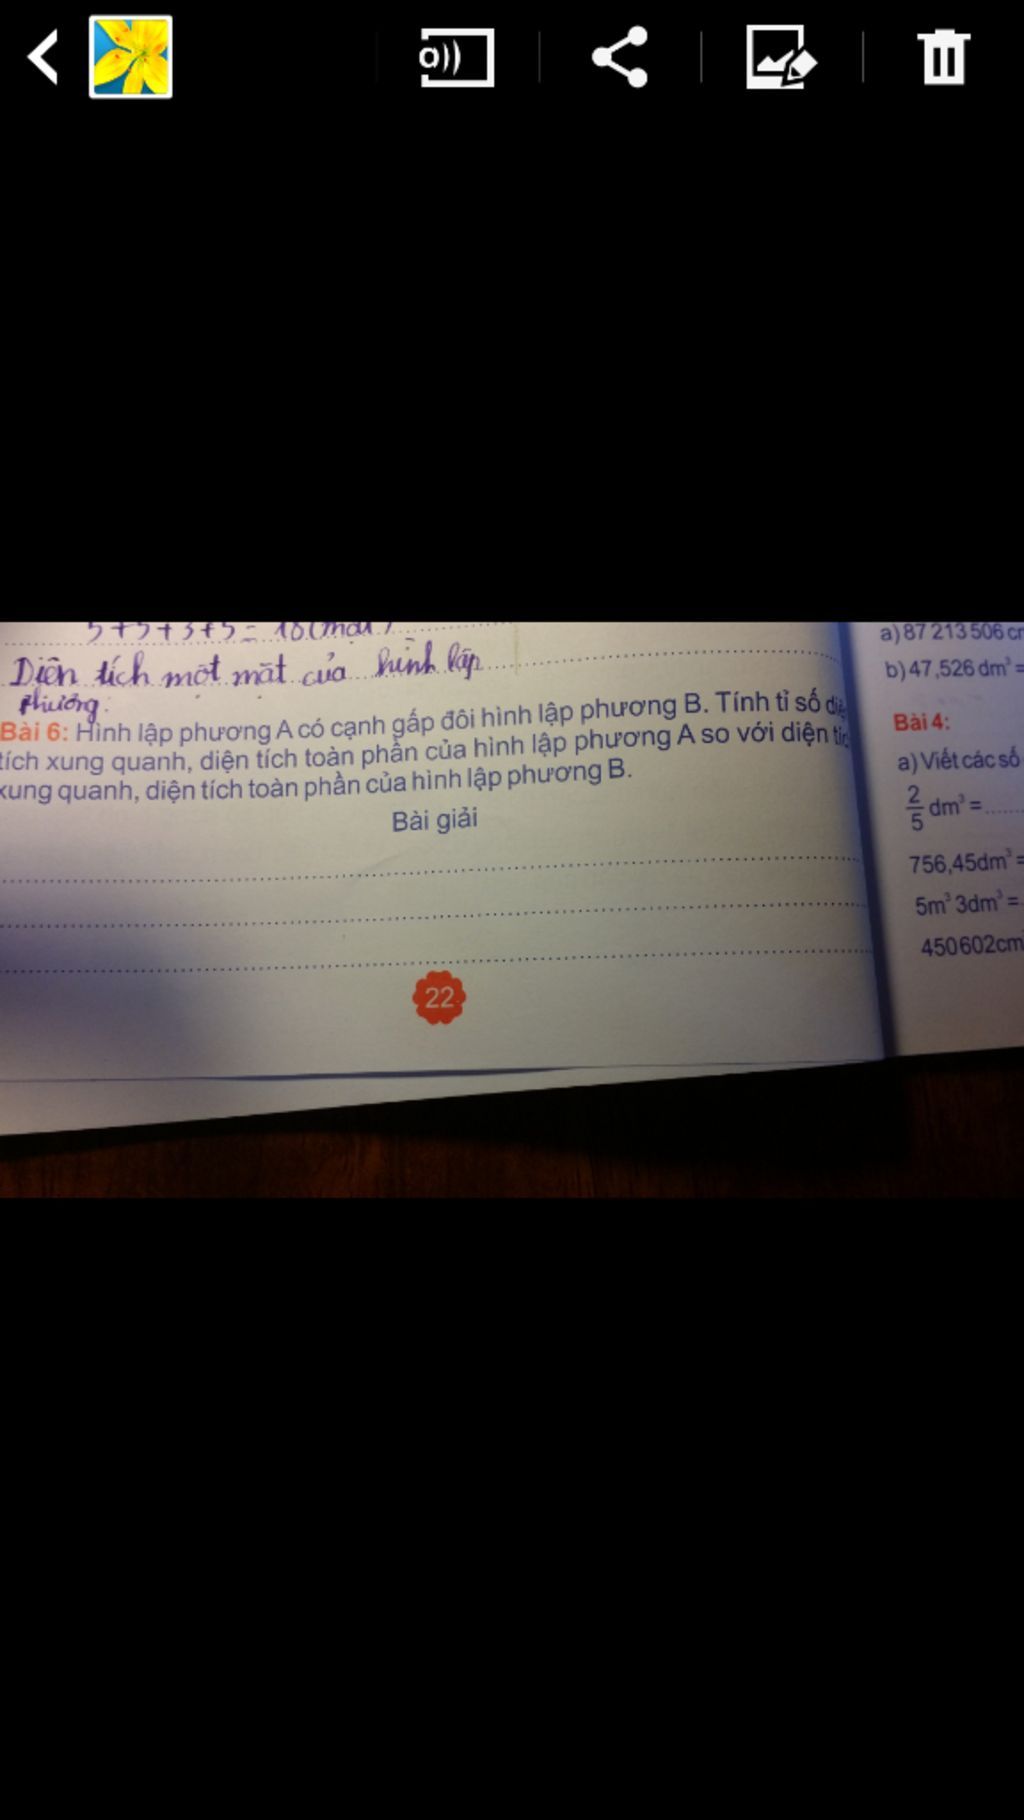 Diện tích một mặt của hình lập
phương:
Bài 6: Hình lập phương A có cạnh gấp đôi hình lập phương B. Tính tỉ số
tích xung quanh, diện tích toàn phần của hình lập phương A so với diện
xung quanh, diện tích toàn phần của hình lập phương B.
Bài giải
22
a) 87 213 506
b) 47,526 dm³ =
Bài 4:
a) Viết các số
2/5 dm³ = ......
756,45dm³ =
5m³ 3dm³ =
450602cm